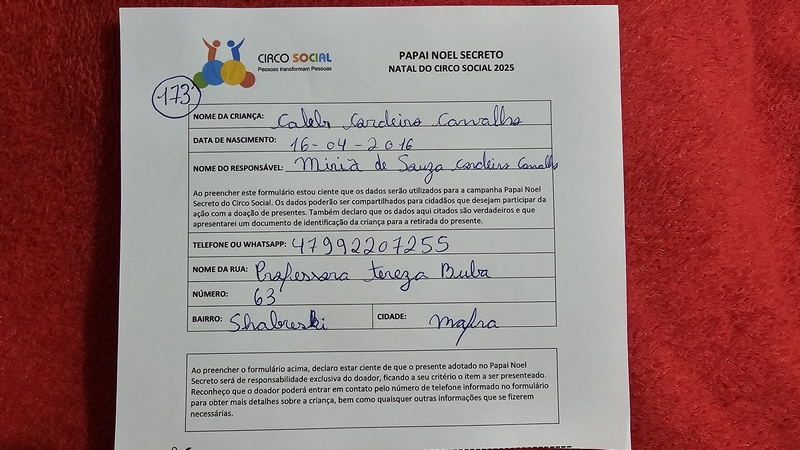 CIRCO SOCIAL
Pessoas transformam Pessoas
PAPAI NOEL SECRETO
NATAL DO CIRCO SOCIAL 2025
173
NOME DA CRIANÇA: Calebr Cordeiro Carvalho
DATA DE NASCIMENTO: 16-04-2016
NOME DO RESPONSÁVEL: Miriã de Souza Cordeiro Carvalho
Ao preencher este formulário estou ciente que os dados serão utilizados para a campanha Papai Noel
Secreto do Circo Social. Os dados poderão ser compartilhados para cidadãos que desejam participar da
ação com a doação de presentes. Também declaro que os dados aqui citados são verdadeiros e que
apresentarei um documento de identificação da criança para a retirada do presente.
TELEFONE OU WHATSAPP: 47992207255
NOME DA RUA: Professora tereza Buba
NÚMERO: 63
BAIRRO: Shabreski CIDADE: mafra
Ao preencher o formulário acima, declaro estar ciente de que o presente adotado no Papai Noel
Secreto será de responsabilidade exclusiva do doador, ficando a seu critério o item a ser presenteado.
Reconheço que o doador poderá entrar em contato pelo número de telefone informado no formulário
para obter mais detalhes sobre a criança, bem como quaisquer outras informações que se fizerem
necessárias.